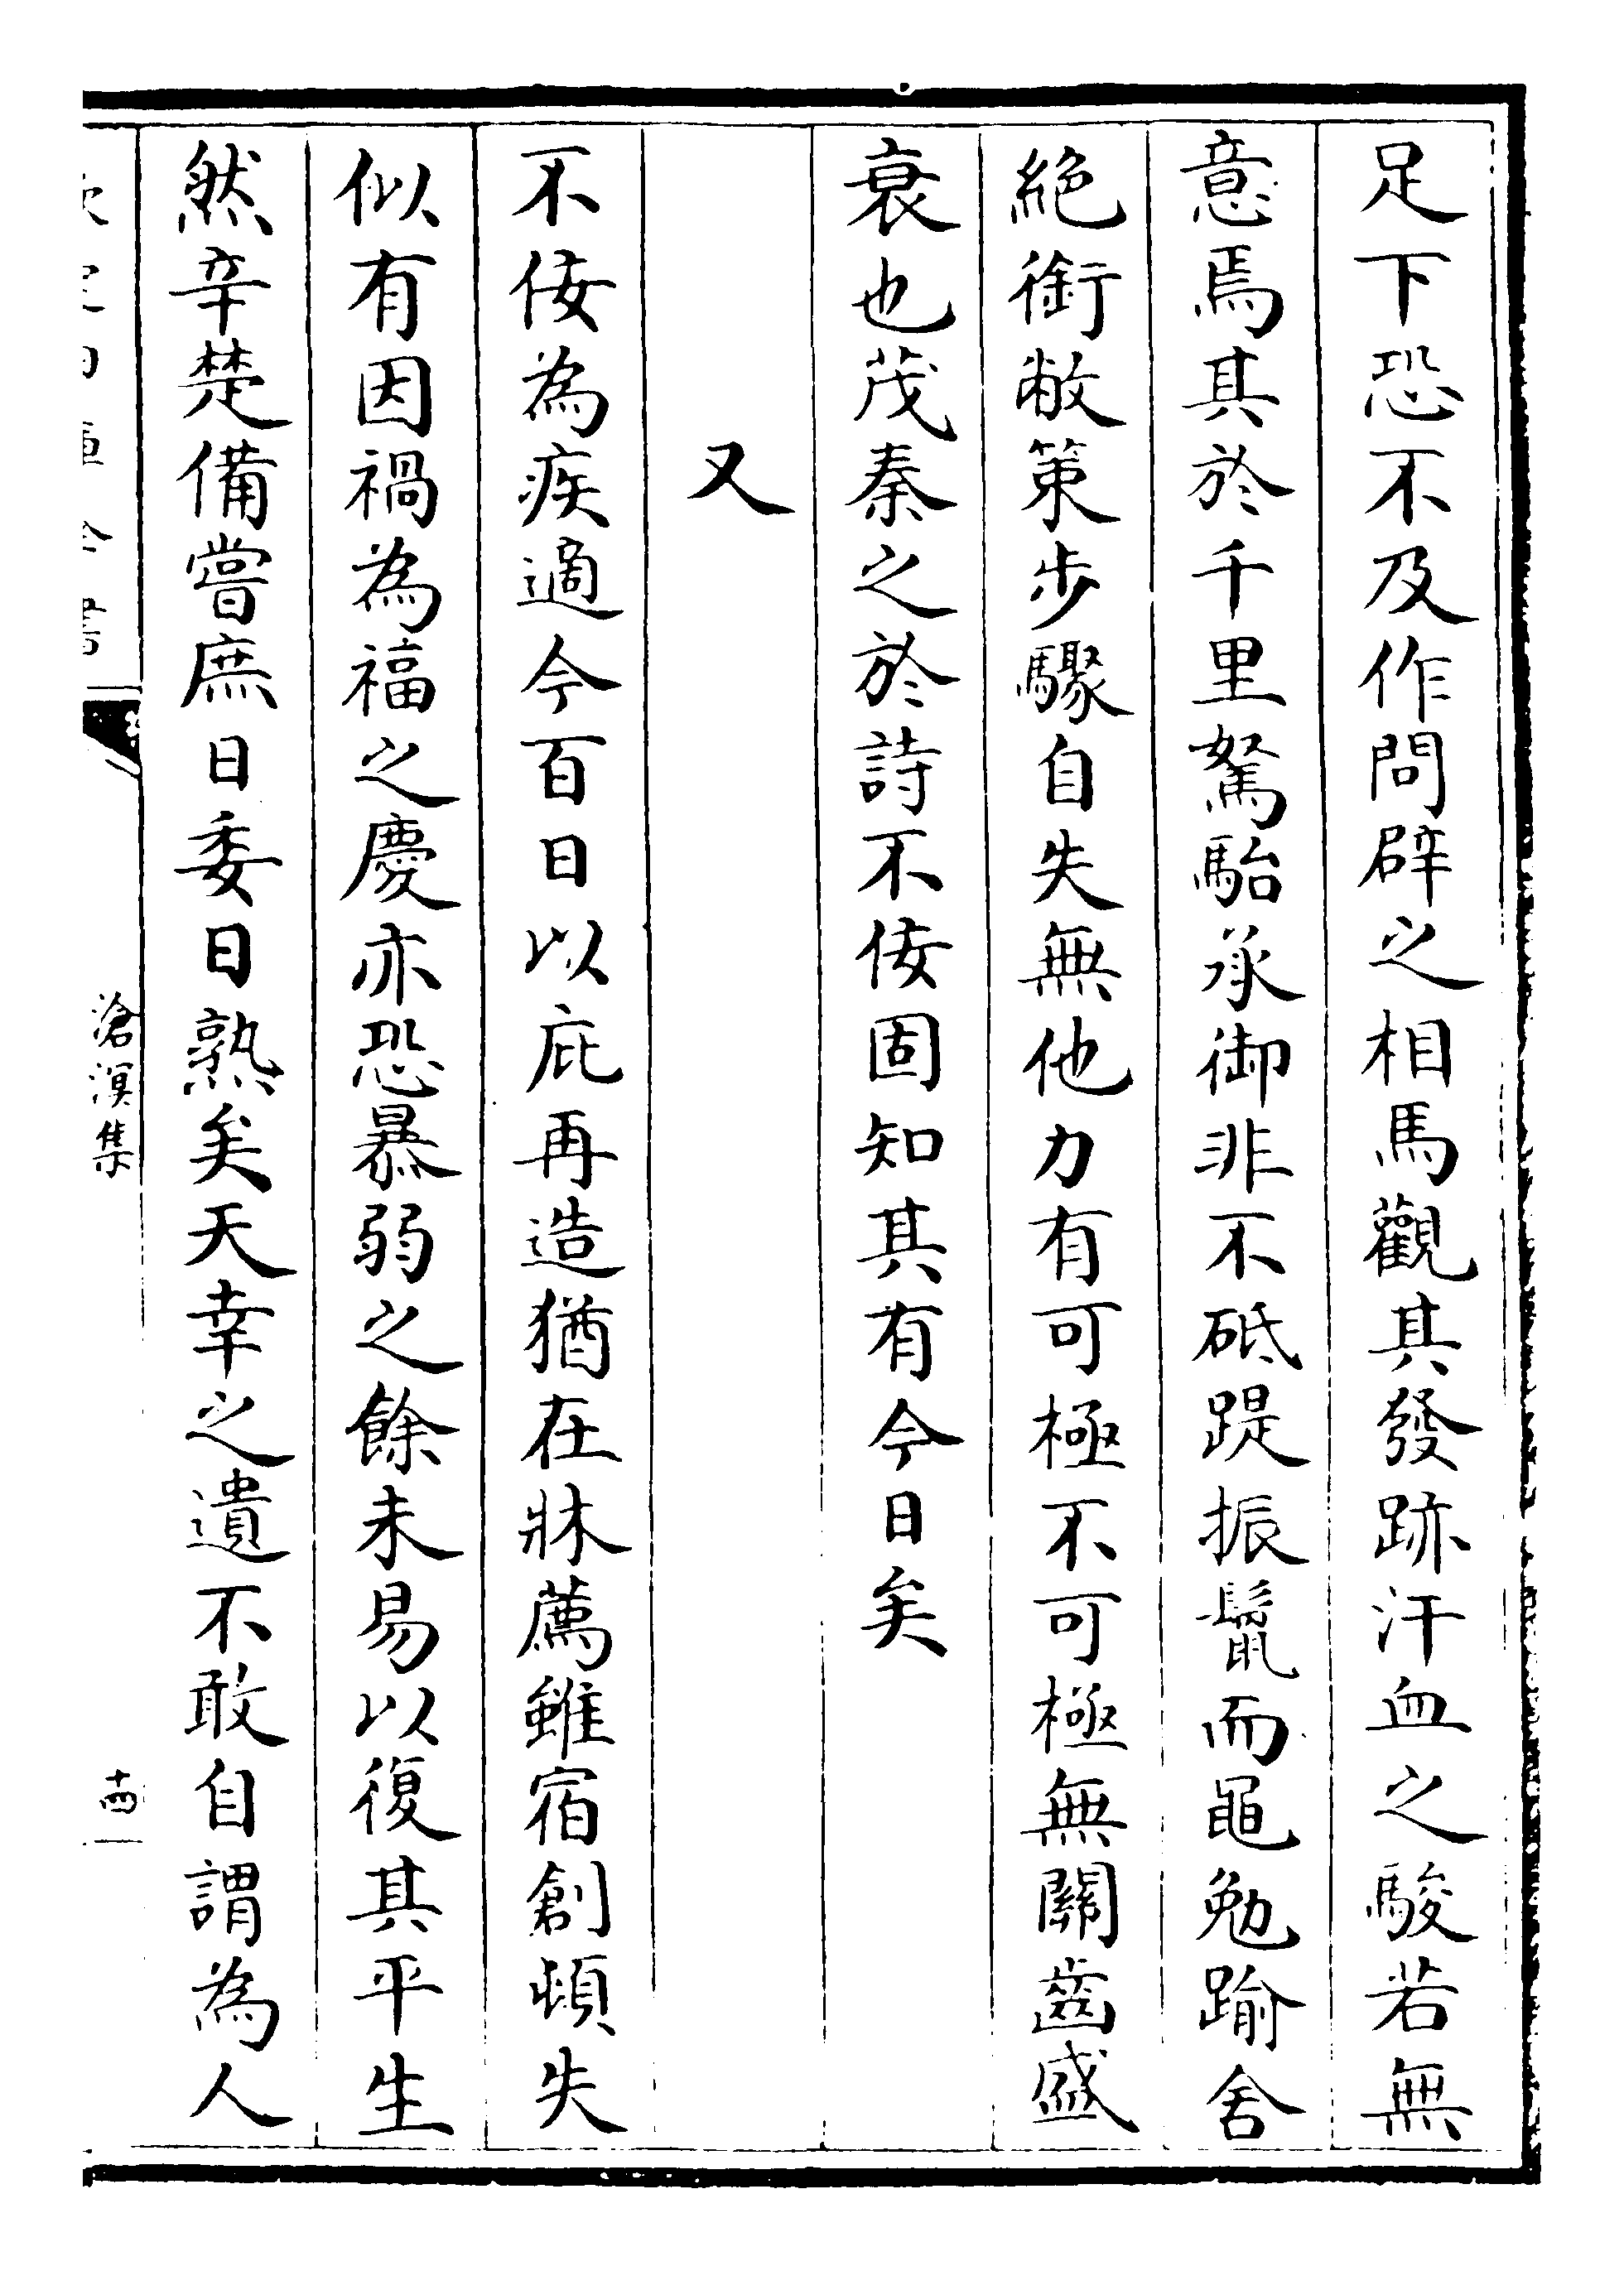 足下恐不及作問辟之相馬觀其發跡汗血之駿若無
意焉其於千里駑駘承御非不砥踶振鬛而黽勉踰舍
絶銜敝策步驟自失無他力有可極不可極無關齒盛
衰也茂秦之於詩不佞固知其有今日矣
又
不佞為疾適今百日以庇再造猶在牀薦雖宿創頓失
似有因禍為福之慶亦恐暴弱之餘未易以復其平生
然辛楚備嘗庶日委日熟矣天幸之遺不敢自謂為人
欽定四庫全書
滄溟集
十四